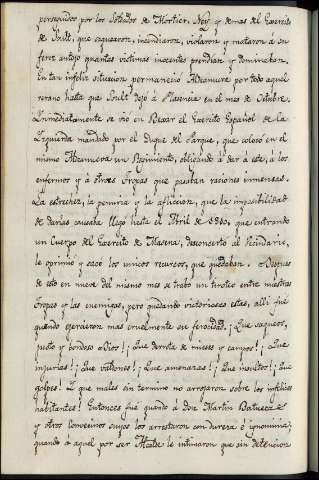 perseguidos por los Soldados de Mortier, Ney y demas del Exercito
de Soult, que saquearon, incendiaron, violaron y mataron á su
fiero antojo quantas victimas inocentes prendian y dominaban.
En tan infeliz situacion permaneció Abeanueve por todo aquel
verano hasta que Soult dejó á Plasencia en el mes de Octubre.
Inmediatamente se vio en Bexar el Exercito Español de la
Izquierda mandado por el Duque del Parque, que colocó en el
mismo un Regimiento, obligando á dar á este, á los
enfermos y á otras tropas que pasaban raciones inmensas.
La estrechez, la penuria y la afliccion, que la imposibilidad
de darlas causaba llegó hasta el Abril de 1810, que entrando
un Cuerpo del Exercito de Masena, desconcertó al Vecindario,
le oprimió y sacó los unicos recursos, que quedaban. Despues
de esto en nueve del mismo mes se trabó un tiroteo entre nuestras
tropas y las enemigas, pero quedando victoriosas estas, alli fue
quando exercieron mas cruelmente su ferocidad. ¡Que saqueos,
justo y bondoso Dios! ¡Que derrota de mieses y campos! ¡Que
injurias! ¡Que baldones! ¡Que amenazas! ¡Que insultos! ¡Que
golpes! Y que males sin termino no arrojaron sobre los infelices
habitantes! Entonces fue quando á Don Martin Batuecas
y otros Convecinos suyos los arrestaron con dureza é ignominia;
quando á aquel por ser Alcalde le intimaron que sin detencion